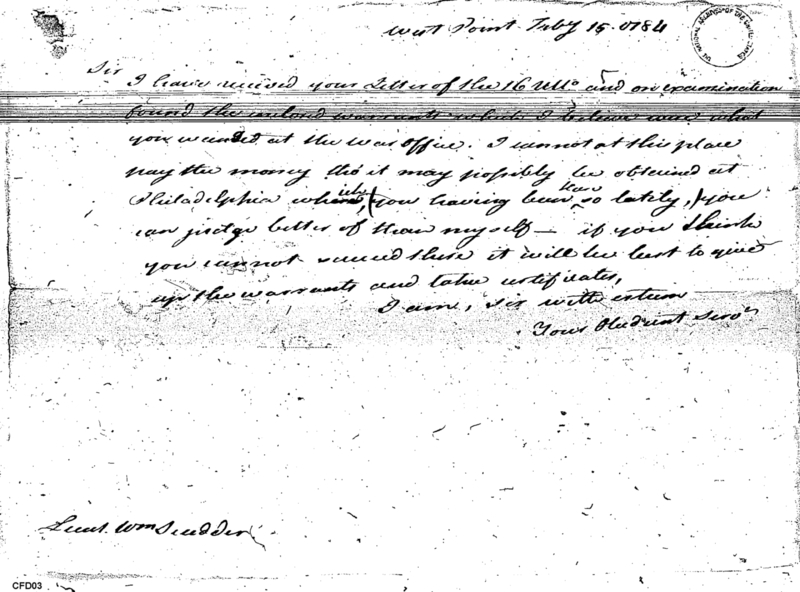 West Point Feby 15. 1784
Sir
I have received your Letter of the 16 Ulto and on examination
found the inclosed warrants which I believe were what
you wanted at the War office. I cannot at this place
pay the money tho it may possibly be obtained at
Philadelphia which, (you having been there so lately,) you
can judge better of than myself — if you think
you cannot succeed there it will be best to give
up the warrants and take certificates,
I am, sir with esteem
Your Obedient Servt
Lieut. Wm Scudder
THE NATIONAL ARCHIVES OF THE UNITED STATES
CFD03